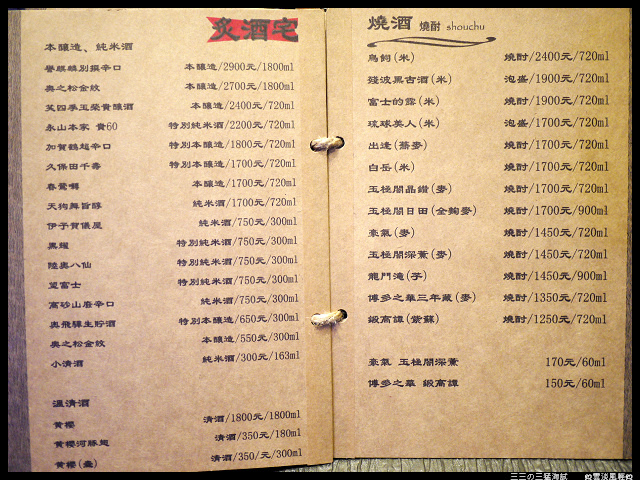 炙酒宅
本釀造、純米酒
譽麒麟別撰辛口 本釀造/2900元/1800ml
奧之松金紋 本釀造/2700元/1800ml
笑四季玉榮貴釀酒 本釀造/2400元/720ml
永山本家 貴60 特別純米酒/2200元/720ml
加賀鶴超辛口 特別本釀造/1800元/720ml
久保田千壽 特別本釀造/1700元/720ml
春鶯囀 本釀造/1700元/720ml
天狗舞旨醇 純米酒/1700元/720ml
伊予賀儀屋 純米酒/750元/300ml
黑耀 特別純米酒/750元/300ml
陸奧八仙 特別純米酒/750元/300ml
望富士 特別純米酒/750元/300ml
高砂山廢辛口 純米酒/750元/300ml
奧飛驒生貯酒 特別本釀造/650元/300ml
奧之松金紋 本釀造/550元/300ml
小清酒 純米酒/300元/163ml
溫清酒
黃櫻 清酒/1800元/1800ml
黃櫻河豚翅 清酒/350元/180ml
黃櫻(壺) 清酒/350元/300ml
燒酒 燒酎 shouchu
鳥飼(米) 燒酎/2400元/720ml
殘波黑古酒(米) 泡盛/1900元/720ml
富士的露(米) 燒酎/1900元/720ml
琉球美人(米) 泡盛/1700元/720ml
出逢(蕎麥) 燒酎/1700元/720ml
白岳(米) 燒酎/1700元/720ml
玉極閣晶鑽(麥) 燒酎/1700元/720ml
玉極閣日田(全麴麥) 燒酎/1700元/900ml
豪氣(麥) 燒酎/1450元/720ml
玉極閣深薰(麥) 燒酎/1450元/720ml
龍門滝(芋) 燒酎/1450元/900ml
博多之華三年藏(麥) 燒酎/1350元/720ml
鍛高譚(紫蘇) 燒酎/1250元/720ml
豪氣 玉極閣深薰 170元/60ml
博多之華 鍛高譚 150元/60ml
三三の三猛海賊